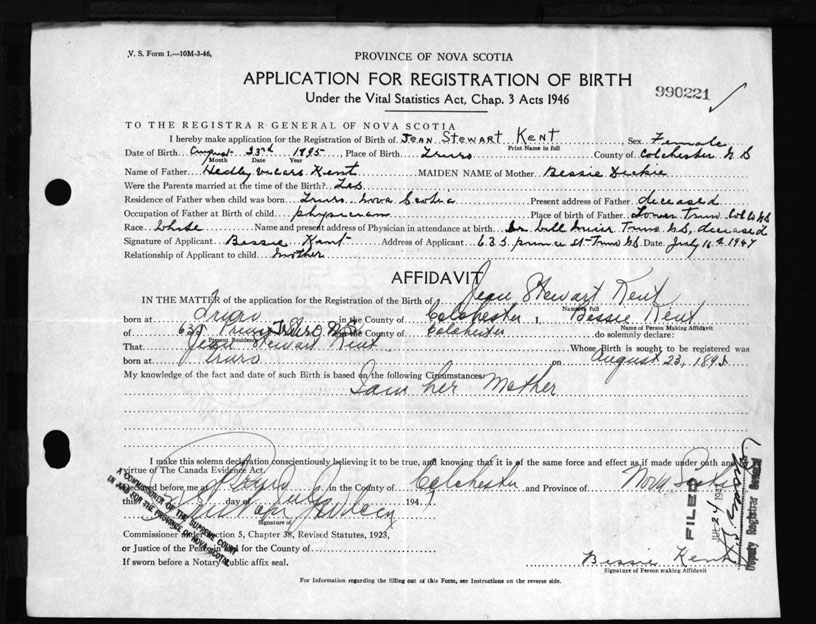 V. S. Form 1.—10M-3-46,
PROVINCE OF NOVA SCOTIA
APPLICATION FOR REGISTRATION OF BIRTH
990221
Under the Vital Statistics Act, Chap. 3 Acts 1946
TO THE REGISTRAR GENERAL OF NOVA SCOTIA
I hereby make application for the Registration of Birth of JEAN STEWART KENT Sex Female
Print Name in full
Date of Birth August 23rd 1895 Place of Birth Truro County of Colchester N S
Month Date Year
Name of Father Hedley Kent MAIDEN NAME of Mother Bessie Dickie
Were the Parents married at the time of Birth? Yes
Residence of Father when child was born Truro, Nova Scotia Present address of Father deceased
Occupation of Father at Birth of child physician Place of birth of Father Lower Truro Col Co NS
Race White Name and present address of Physician in attendance at birth Dr Will Muir Truro N.S, deceased
Signature of Applicant Bessie Kent Address of Applicant 635 prince St-Truro NS Date July 16 1947
Relationship of Applicant to child mother
AFFIDAVIT
IN THE MATTER of the application for the Registration of Birth of Jean Stewart Kent
Name in full
born at Truro in the County of Colchester I, Bessie Kent
Name of Person Making Affidavit
of 635 Prince Truro N.S. in the County of Colchester do solemnly declare:
Present Residence
That Jean Stewart Kent Whose Birth is sought to be registered was
born at Truro on August 23, 1895
My knowledge of the fact and date of such Birth is based on the following Circumstances:
I am her Mother
I make this solemn declaration conscientiously believing it to be true, and knowing that it is of the same force and effect as if made under oath and by
virtue of The Canada Evidence Act.
Declared before me at Truro in the County of Colchester and Province of Nova Scotia
this day of July 194
Signature of
A COMMISSIONER OF THE SUPREME COURT
IN AND FOR THE PROVINCE OF NOVA SCOTIA
Commissioner Section 5, Chapter 38, Revised Statutes, 1923,
or Justice of the Peace in and for the County of
If sworn before a Notary Public affix seal.
Bessie Kent
Signature of Person making Affidavit
FILED
JUL 24 194
Deputy Registrar General
For Information regarding the filling out of this Form, see Instructions on the reverse side.